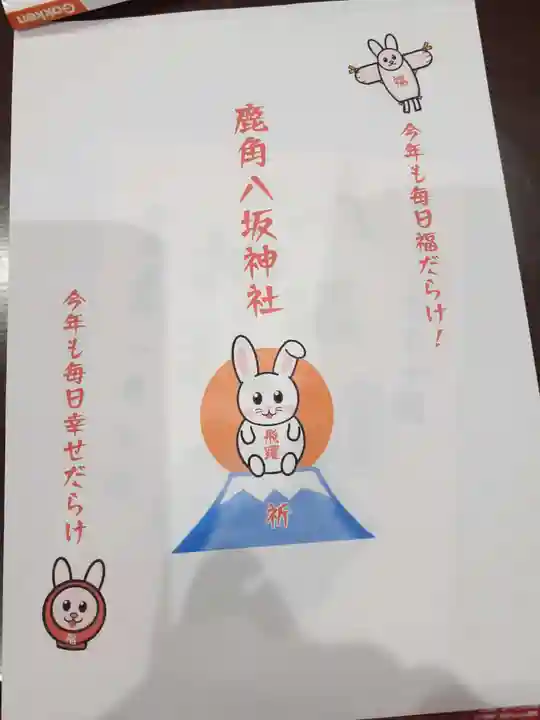 Gakken
福
今年も毎日福だらけ!
鹿角八坂神社
飛躍
祈
今年も毎日幸せだらけ
福